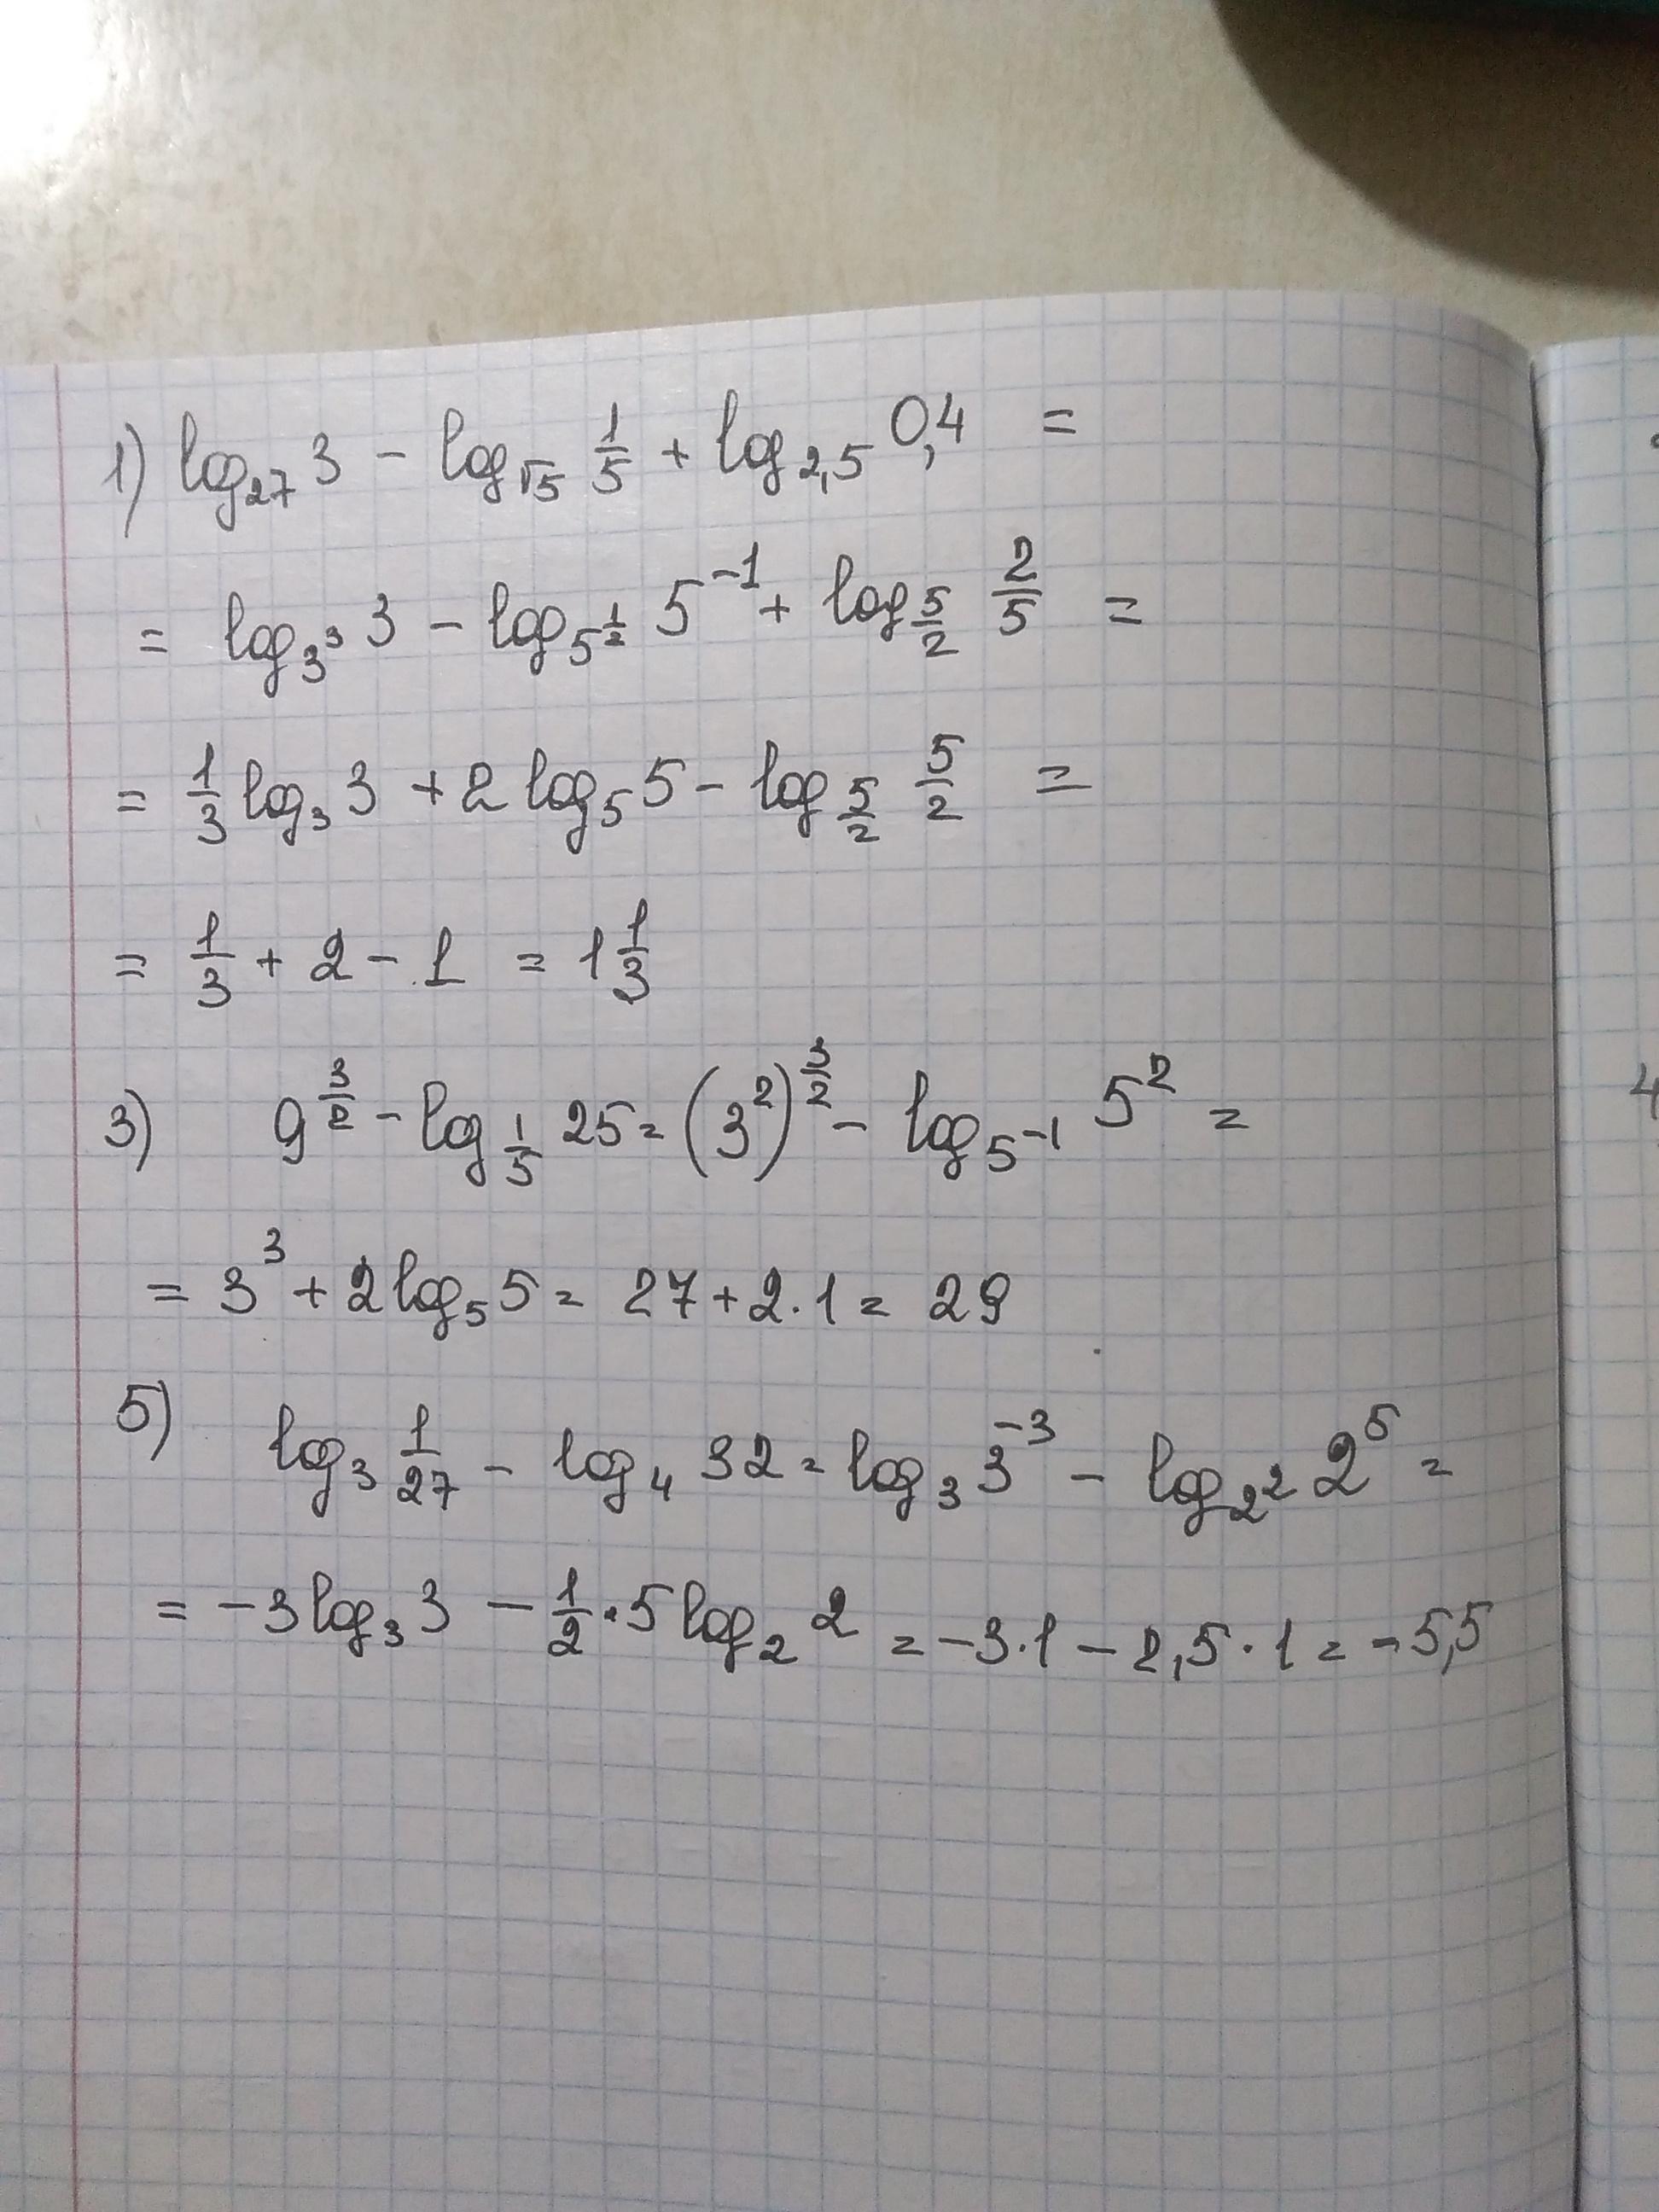 1) log₂₇ 3 − log_√5 1/5 + log₂,₅ 0,4 =
= log_3³ 3 − log_5^(1/2) 5⁻¹ + log_5/2 2/5 =
= 1/3 log₃ 3 + 2 log₅ 5 − log_5/2 5/2 =
= 1/3 + 2 − 1 = 1 1/3
3) 9^(3/2) − log_1/5 25 = (3²)^(3/2) − log_5⁻¹ 5² =
= 3³ + 2 log₅ 5 = 27 + 2 · 1 = 29
5) log₃ 1/27 − log₄ 32 = log₃ 3⁻³ − log_2² 2⁵ =
= −3 log₃ 3 − 1/2 · 5 log₂ 2 = −3 · 1 − 2,5 · 1 = −5,5